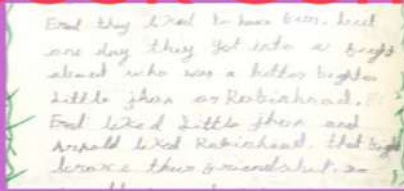 Erol they liked to have fun. but
one day they got into a fight
about who was a better fighter
Little jhon or Robinhood.
Erol liked Little jhon and
Arnold liked Robinhood. that fight
broke their friendship. so